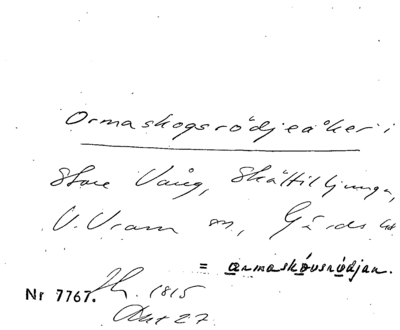 Ormaskogsrödjeåker i
Store Vång, Skättiljunga,
V. Vram sn, Gärds hd
= ormaskóvsrödjan.
Nr 7767. 1815
Akt 27